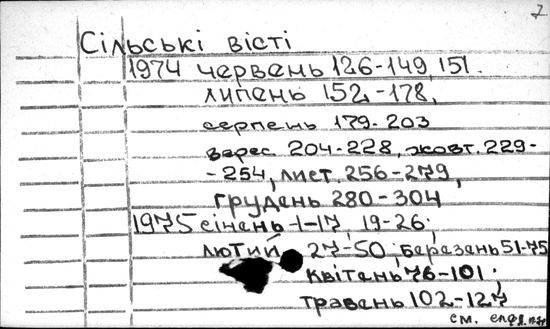 7
Сільські вісті
1974 червень 126-149, 151.
липень 152-178,
серпень 179-203
верес 204-228, жовт. 229-
-254, лист 256-279,
грудень 280-304
1975 січень 1-17, 19-26;
лютий 27-50; березень 51-75
квітень 76-101;
травень 102-127
см. след.